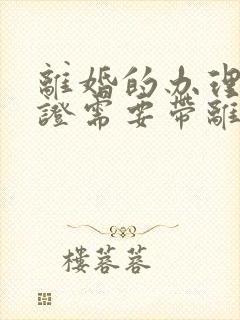 離婚的办理
證需要帶離
樓蓉蓉